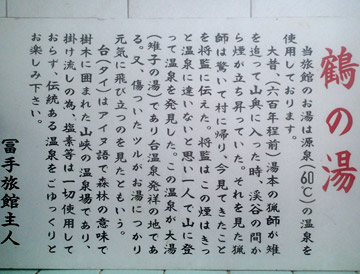 鶴の湯
当旅館のお湯は源泉(60℃)の温泉を
使用しております。
大昔、(六百年程前)湯本の猟師が雉
を追って山奥に入った時、渓谷の間か
ら煙が立ち昇っていた。それを見た猟
師は驚いて村に帰り、今見てきたこと
を将監に伝えた。将監はこの煙はきっ
と温泉に違いないと思い一人で山に登
って温泉を発見した。この温泉が大湯
(雉子の湯)であり台温泉発祥の地であ
る。又、傷ついたツルがお湯につかり
元気に飛び立つのを見たともいう。
台(タイ)はアイヌ語で森林の意味で
樹木に囲まれた山峡の温泉場であり、
掛け流しの為、塩素等は一切使用して
おらず、伝統ある温泉をごゆっくりと
お楽しみ下さい。
冨手旅館主人